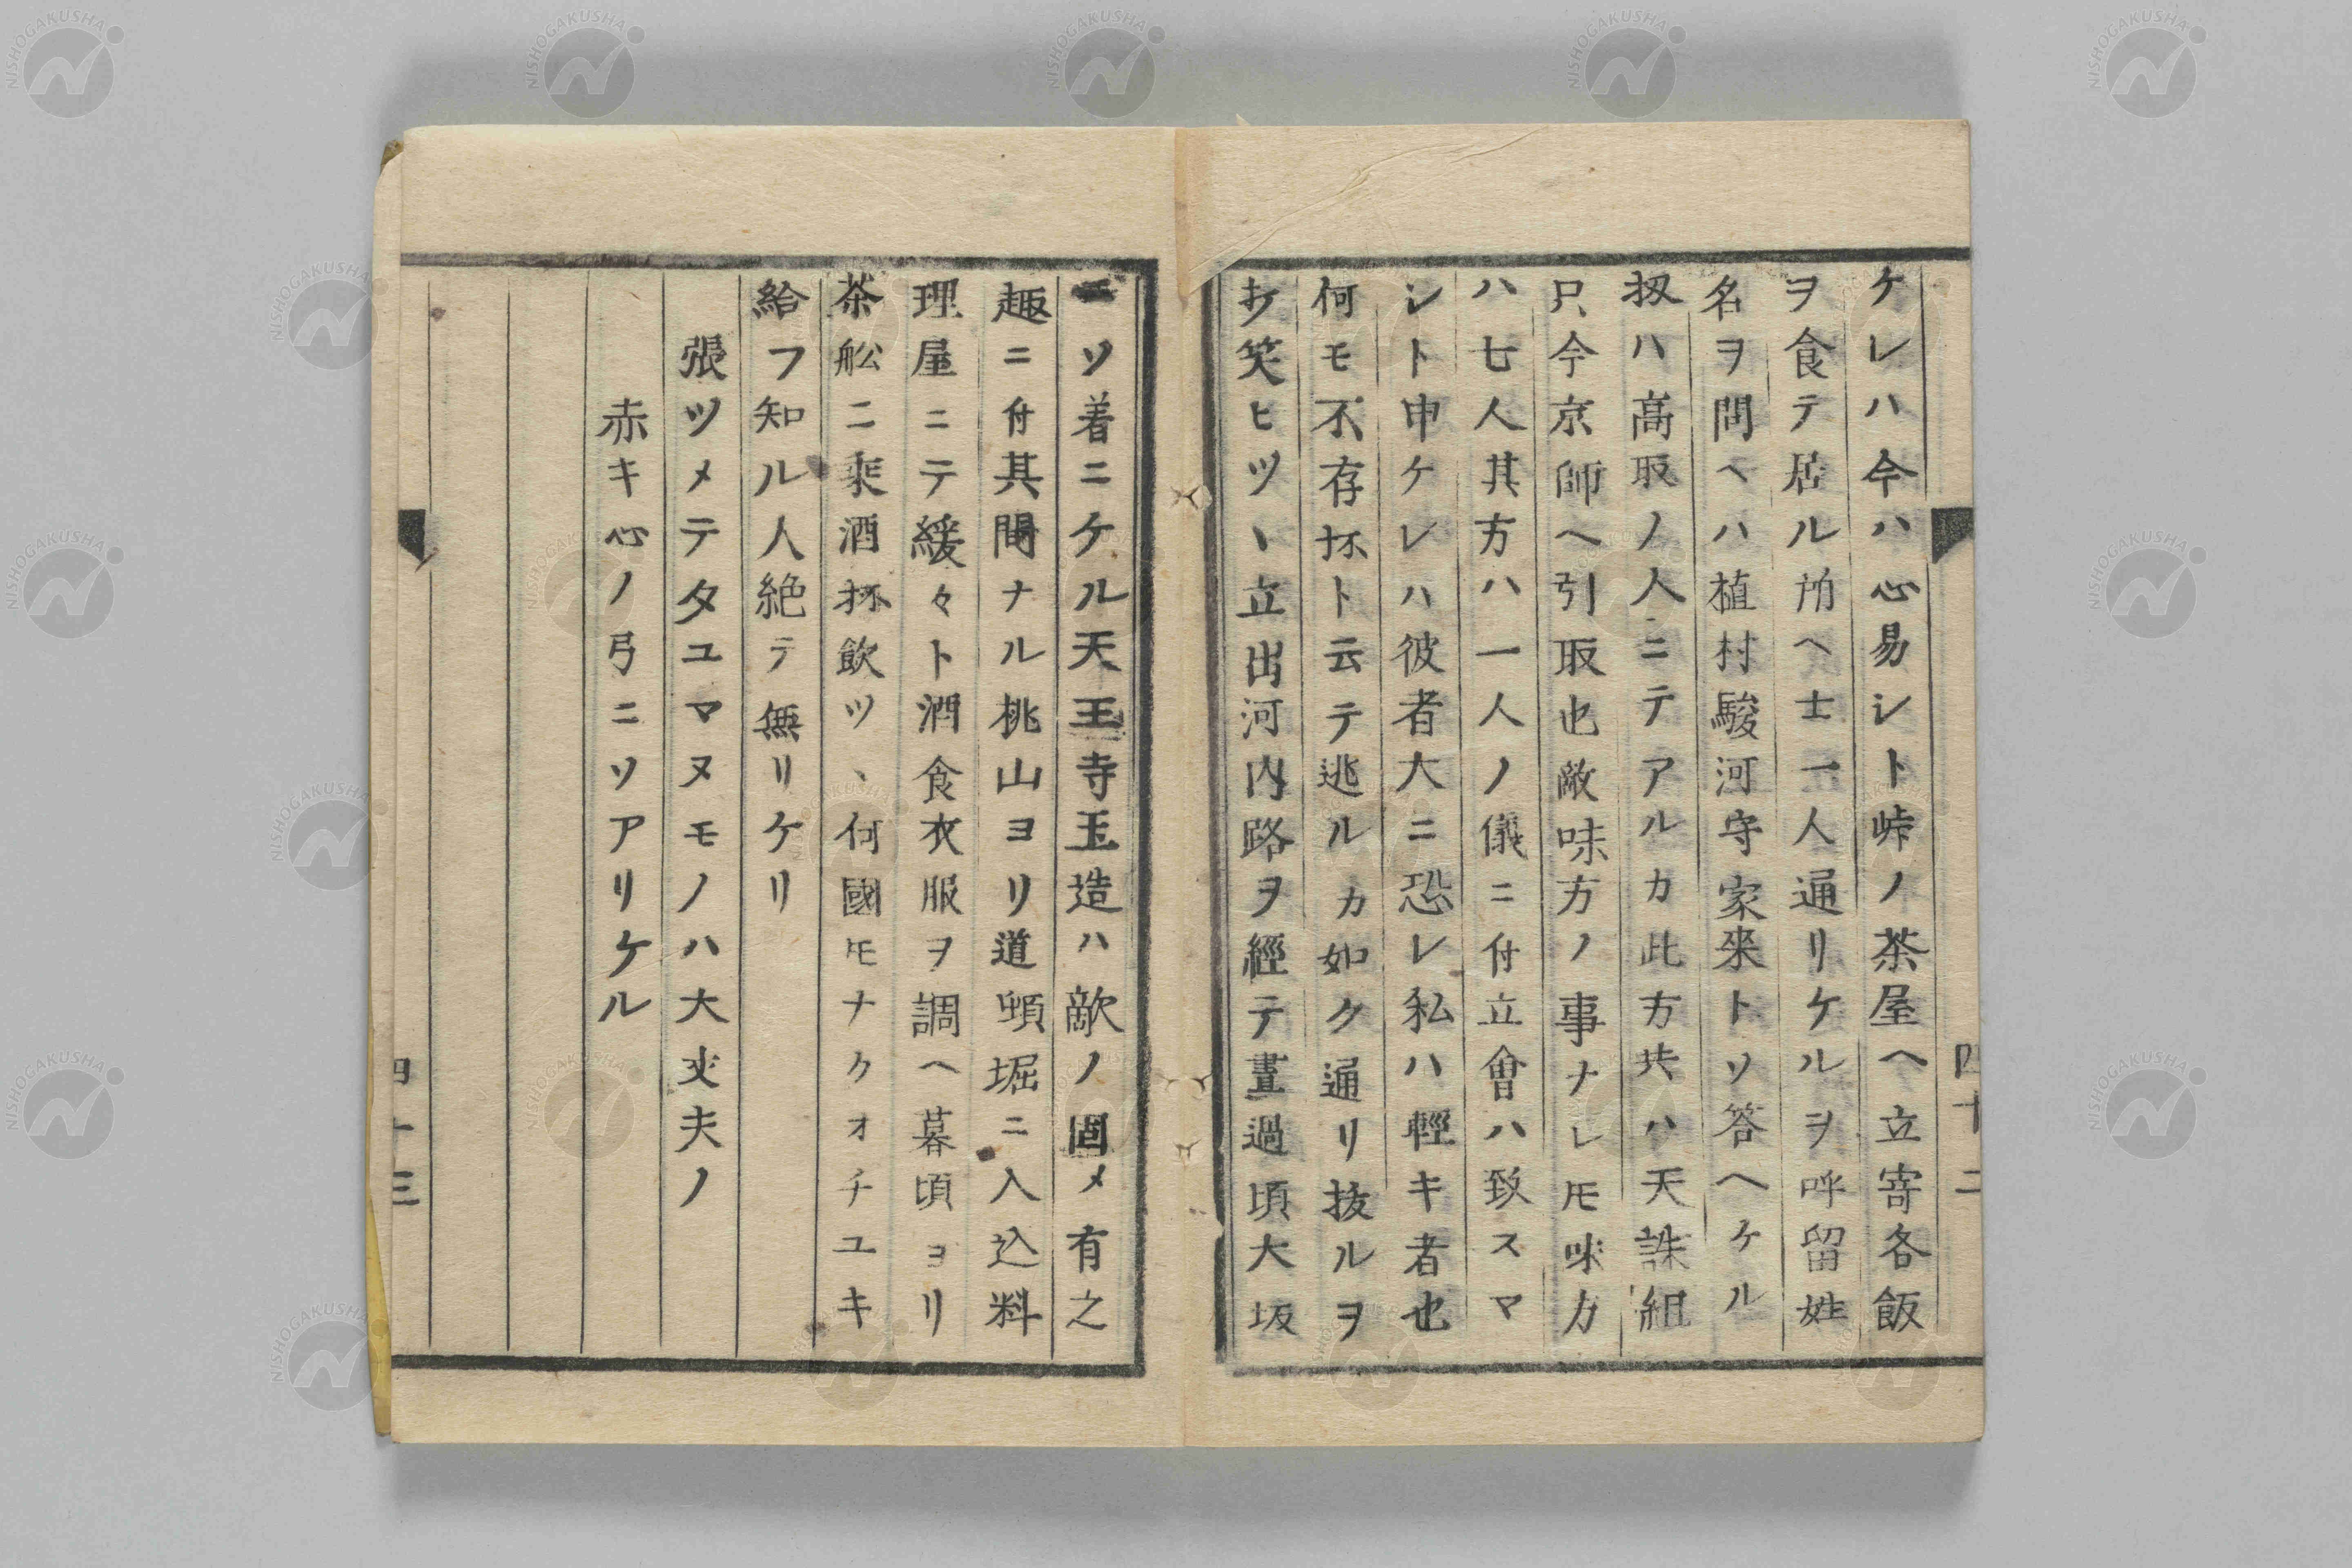 ケレハ今ハ心易シト峠ノ茶屋ヘ立寄各飯
ヲ食テ居ル所ヘ士一人通リケルヲ呼留姓
名ヲ問ヘハ植村駿河守家來トソ答ヘケル
扨ハ髙取ノ人ニテアルカ此方共ハ天誅組
只今京師ヘ引取也敵味方ノ事ナレ𪜈味方
ハ七人其方ハ一人ノ儀ニ付立會ハ致スマ
シト申ケレハ彼者大ニ恐レ私ハ輕キ者也
何モ不存抔ト云テ逃ルカ如ク通リ抜ルヲ
打笑ヒツヽ立出河内路ヲ經テ晝過頃大坂
四十二
ニソ着ニケル天王寺玉造ハ敵ノ固メ有之
趣ニ付其間ナル桃山ヨリ道頓堀ニ入込料
理屋ニテ緩々ト酒食衣服ヲ調ヘ暮頃ヨリ
茶舩ニ乘酒抔飲ツヽ何國𪜈ナクオチユキ
給フ知ル人絶テ無リケリ
張ツメテタユマヌモノハ大丈夫ノ
赤キ心ノ弓ニソアリケル
四十三
NISHOGAKUSHA